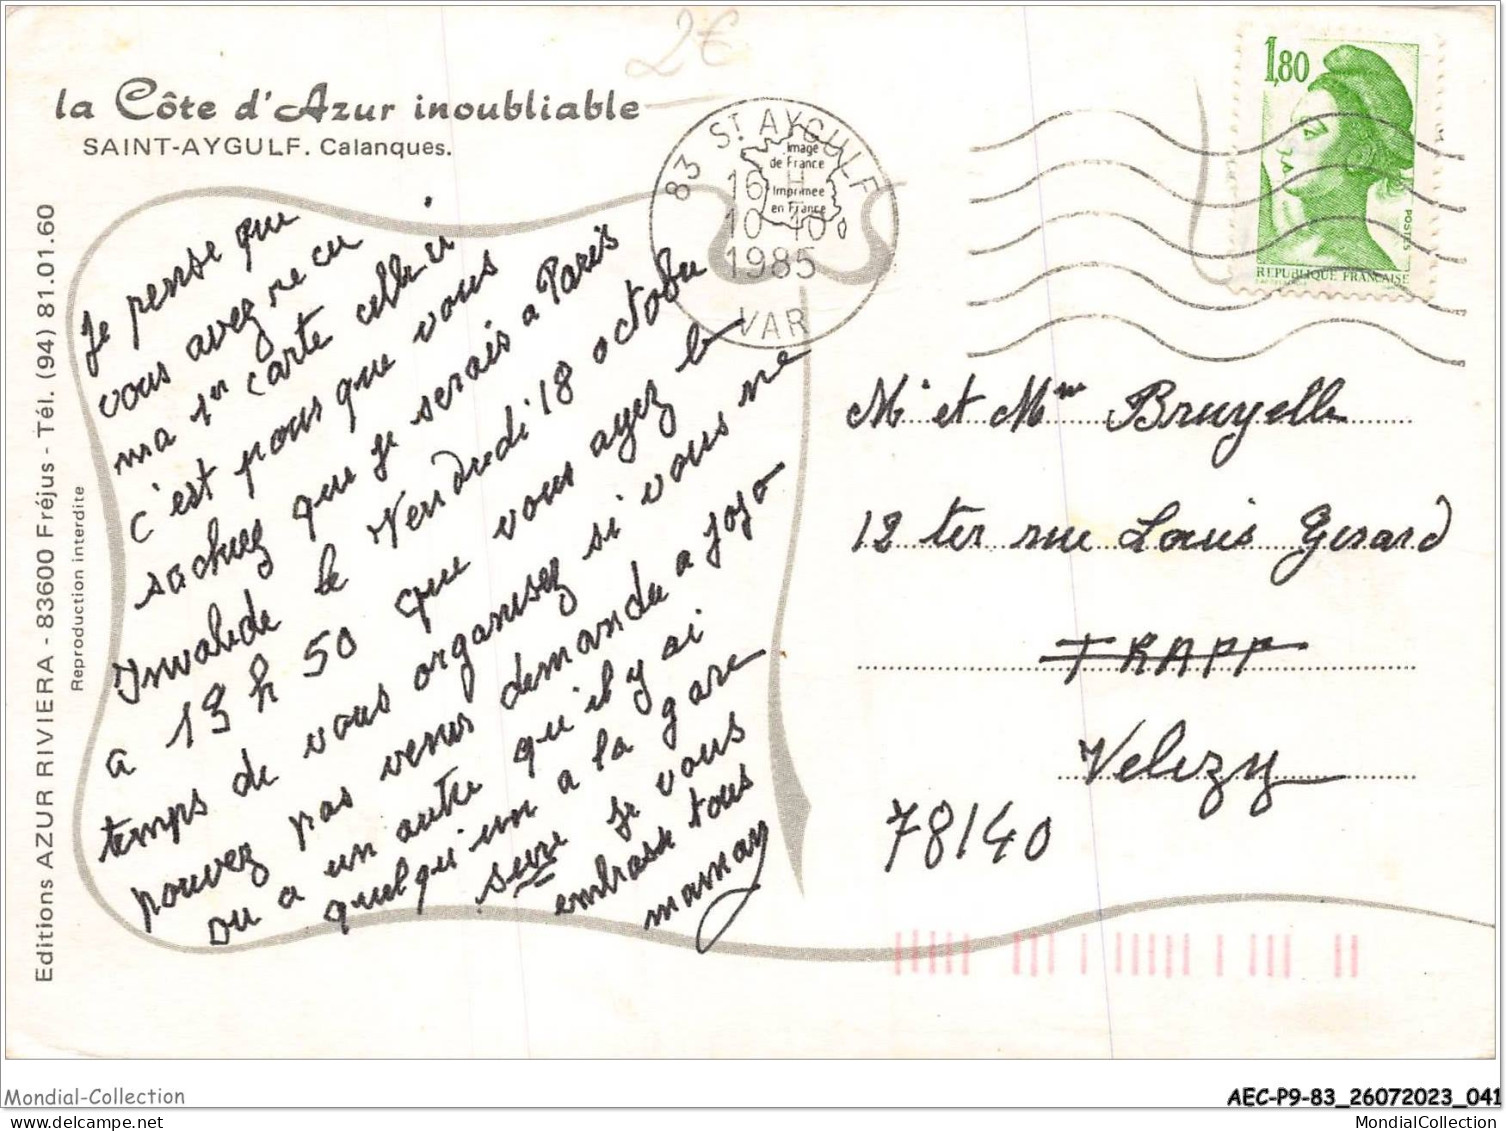 2€
la Côte d'Azur inoubliable
SAINT-AYGULF. Calanques.
83 ST AYGULF
16 H
10-10
1985
VAR
Image
de France
Imprimée
en France
1,80
POSTES
REPUBLIQUE FRANÇAISE
Editions AZUR RIVIERA - 83600 Fréjus - Tél. (94) 81.01.60
Reproduction interdite
Je pense que
vous avez recu
ma 1er carte celle ci
c'est pour que vous
sachiez que je serais a Paris
Invalide le Vendredi 18 octobre
a 13 h 50 que vous ayez le
temps de vous organisez si vous ne
pouvez pas venir demandez a jojo
ou a un autre qu'il y ai
quelqu'un a la gare
seize je vous
embrasse tous
mamay
Mr et Mme Bruyelle
12 ter rue Louis Gerard
TRAPP
Velizy
78140
Mondial-Collection
AEC-P9-83_26072023_041
MondialCollection